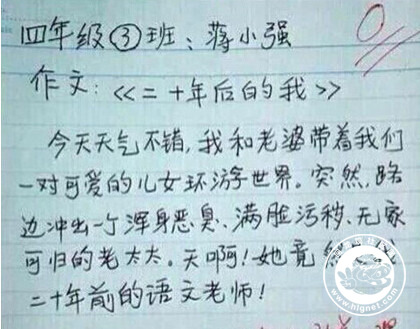 四年级③班：蒋小强
0
作文：《二十年后的我》
今天天气不错，我和老婆带着我们
一对可爱的儿女环游世界。突然，路
边冲出一个浑身恶臭、满脸污秽、无家
可归的老太太。天啊！她竟
二十年前的语文老师！
www.hlgnet.com